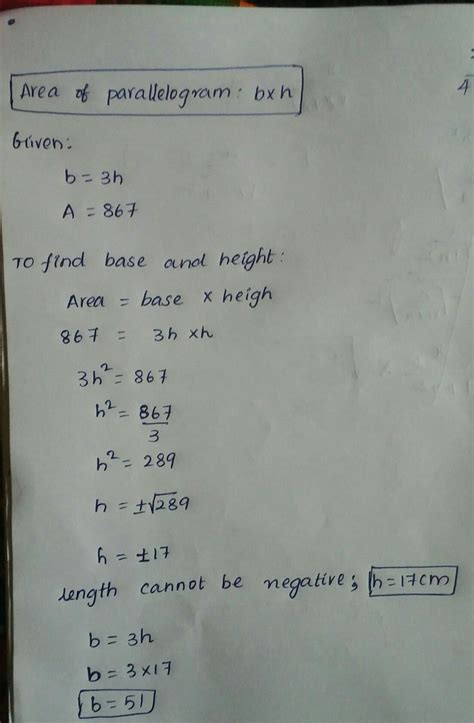 Area of parallelogram: b×h
4
Given:
b = 3h
A = 867
To find base and height:
Area = base × heigh
867 = 3h ×h
3h² = 867
h² = 867/3
h² = 289
h = ±√289
h = ±17
length cannot be negative; h=17cm
b = 3h
b = 3×17
b = 51